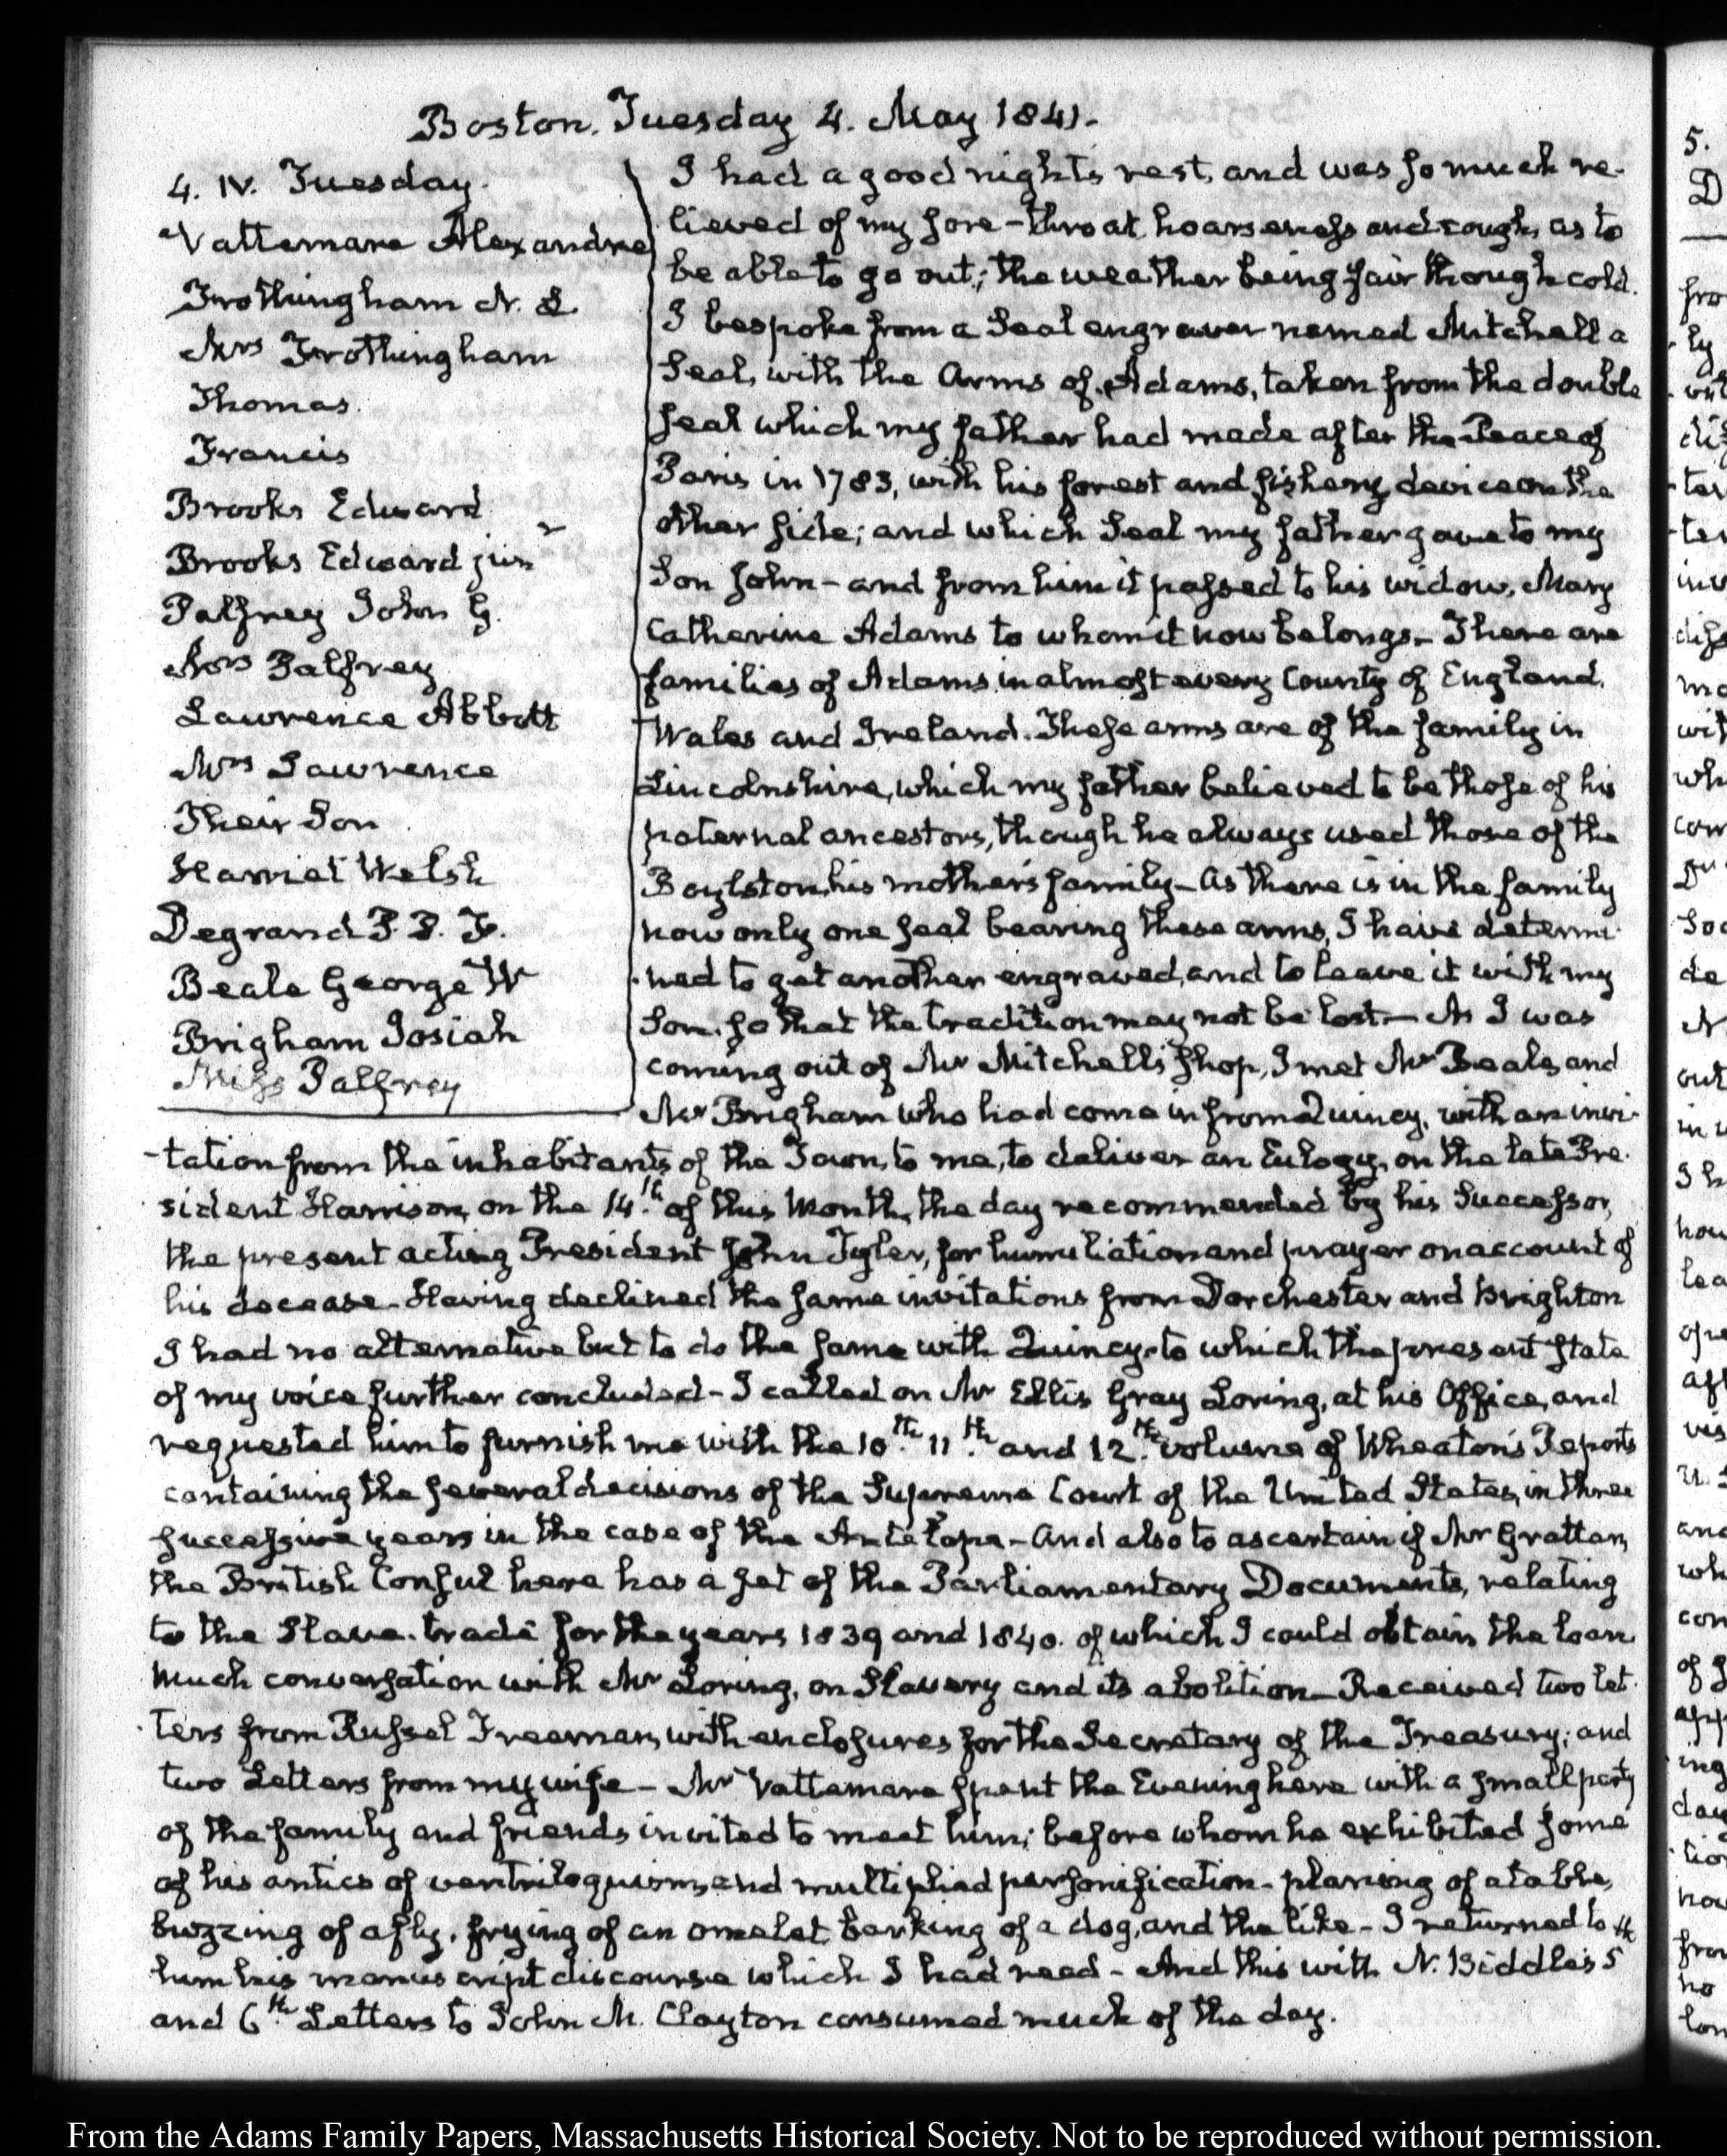 Boston. Tuesday 4. May 1841.
4. IV. Tuesday.
Vattemare Alexandre
Frothingham N. L.
Mrs Frothingham
Thomas.
Francis
Brooks Edward
Brooks Edward junr
Palfrey John G.
Mrs Palfrey
Lawrence Abbott
Mrs Lawrence
Their Son
Harriet Welsh
Degrand P. P. F.
Beale George W
Brigham Josiah
Miss Palfrey
I had a good night's rest, and was so much re-
lieved of my sore-throat, hoarseness and cough, as to
be able to go out; the weather being fair though cold.
I bespoke from a Seal engraver named Mitchell a
Seal, with the Arms of Adams, taken from the double
seal which my father had made after the Peace of
Paris in 1783, with his forest and fishery device on the
other side; and which Seal my father gave to my
Son John - and from him it passed to his widow, Mary
Catherine Adams to whom it now belongs. There are
families of Adams in almost every County of England,
Wales and Ireland. These arms are of the family in
Lincolnshire, which my father believed to be those of his
paternal ancestors, though he always used those of the
Boylston, his mother's family - As there is in the family
now only one seal bearing these arms, I have determi-
ned to get another engraved, and to leave it with my
Son, so that the tradition may not be lost - As I was
coming out of Mr Mitchell's shop, I met Mr Beale, and
Mr Brigham who had come in from Quincy, with an invi-
-tation from the inhabitants of the Town, to me, to deliver an Eulogy, on the late Pre-
sident Harrison, on the 14th of this Month, the day recommended by his Successor,
the present acting President John Tyler, for humiliation and prayer on account of
his decease - Having declined the same invitations from Dorchester and Brighton
I had no alternative but to do the same with Quincy, to which the present state
of my voice further concluded - I called on Mr Ellis Gray Loring, at his Office, and
requested him to furnish me with the 10th 11th and 12th volume of Wheaton's Reports
containing the several decisions of the Supreme Court of the United States, in three
successive years in the case of the Antelope - And also to ascertain if Mr Grattan,
the British Consul here has a set of the Parliamentary Documents, relating
to the Slave-trade for the years 1839 and 1840. of which I could obtain the loan
Much conversation with Mr Loring, on Slavery and its abolition - Received two let-
-ters from Russel Freeman, with enclosures for the Secretary of the Treasury; and
two Letters from my wife - Mr Vattemare spent the Evening here with a small party
of the family and friends, invited to meet him; before whom he exhibited some
of his antics of ventriloquism, and multiplied personification - planing of a table,
buzzing of a fly, frying of an omelet, barking of a dog, and the like - I returned to
him his manuscript discourse which I had read - And this with N. Biddle's 5th
and 6th Letters to John M. Clayton consumed much of the day.
5.
D
From the Adams Family Papers, Massachusetts Historical Society. Not to be reproduced without permission.